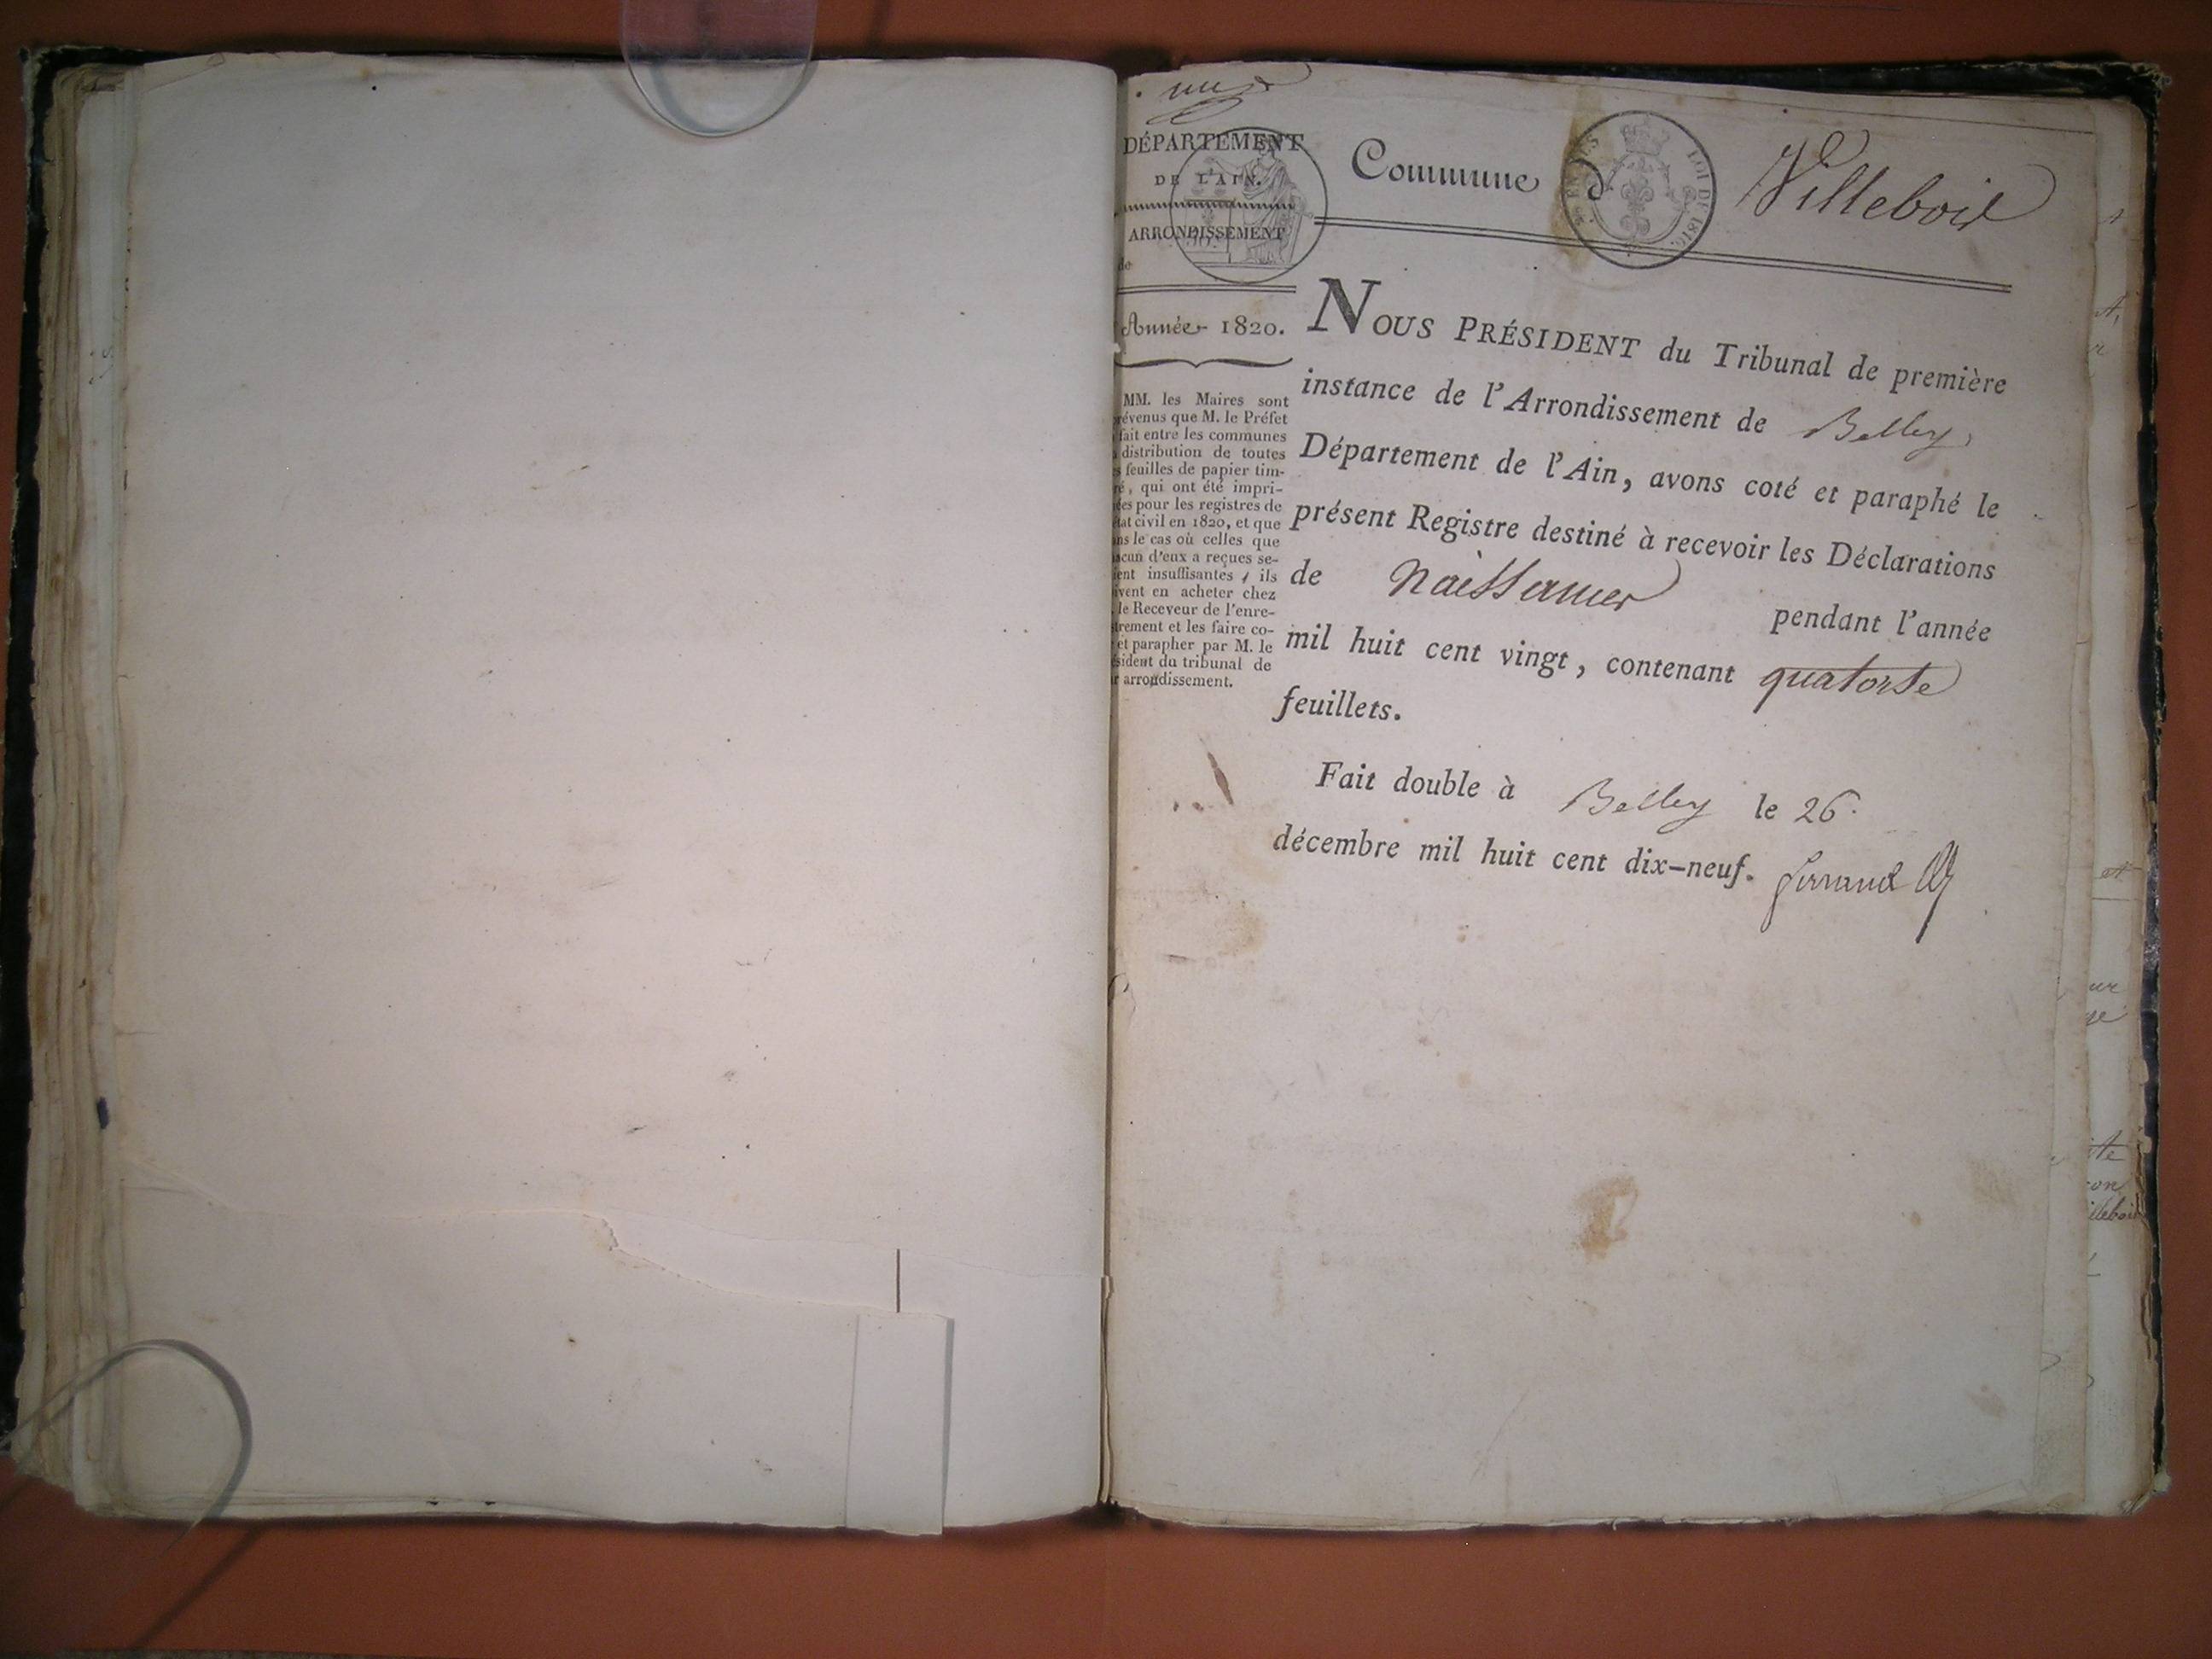 DÉPARTEMENT
DE L'AIN.
ARRONDISSEMENT
de
Année 1820.
MM. les Maires sont
révenus que M. le Préfet
fait entre les communes
distribution de toutes
s feuilles de papier tim-
ré, qui ont été impri-
ées pour les registres de
état civil en 1820, et que
ns le cas où celles que
acun d'eux a reçues se-
ient insuffisantes, ils
ivent en acheter chez
le Receveur de l'enre-
trement et les faire co-
et parapher par M. le
ésident du tribunal de
r arrondissement.
Commune d Villebois
LOI DE 1816.
NOUS PRÉSIDENT du Tribunal de première
instance de l'Arrondissement de Belley
Département de l'Ain, avons coté et paraphé le
présent Registre destiné à recevoir les Déclarations
de Naissances pendant l'année
mil huit cent vingt, contenant quatorse
feuillets.
Fait double à Belley le 26.
décembre mil huit cent dix-neuf.